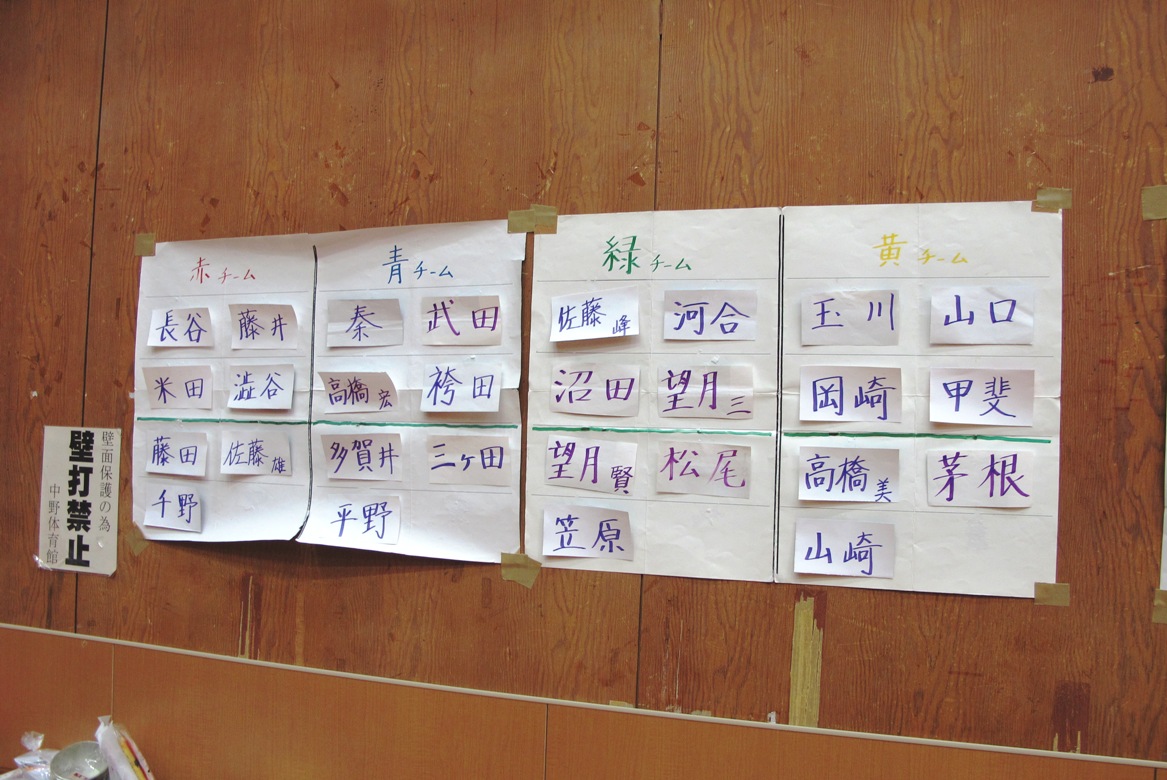 赤チーム
長谷 藤井
米田 澁谷
藤田 佐藤雄
千野
青チーム
秦 武田
高橋宏 袴田
多賀井 三ヶ田
平野
緑チーム
佐藤峰 河合
沼田 望月三
望月賢 松尾
笠原
黄チーム
玉川 山口
岡崎 甲斐
高橋美 茅根
山崎
壁面保護の為
壁打禁止
中野体育館